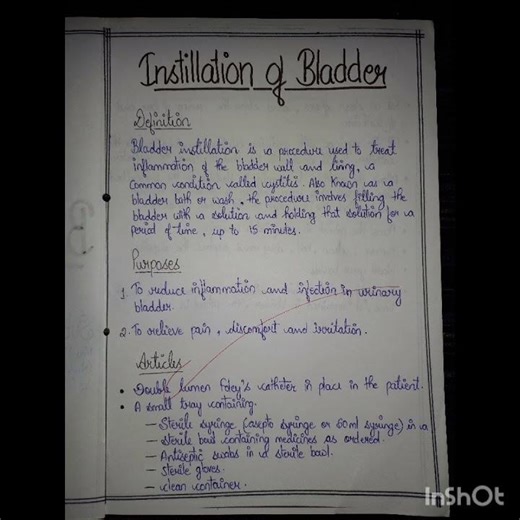 Instillation of Bladder
Definition
Bladder instillation is a procedure used to treat
inflammation of the bladder wall and lining, a
common condition called cystitis. Also known as a
bladder bath or wash, the procedure involves filling the
bladder with a solution and holding that solution for a
period of time, up to 15 minutes.
Purposes
1. To reduce inflammation and infection in urinary
bladder.
2. To relieve pain, discomfort and irritation.
Articles
• Double lumen foley's catheter in place in the patient.
• A small tray containing.
— Sterile syringe (asepto syringe or 50ml syringe) in a
— sterile bowl containing medicines as ordered.
— Antiseptic swabs in a sterile bowl.
— Sterile gloves.
— clean container.
InShOt